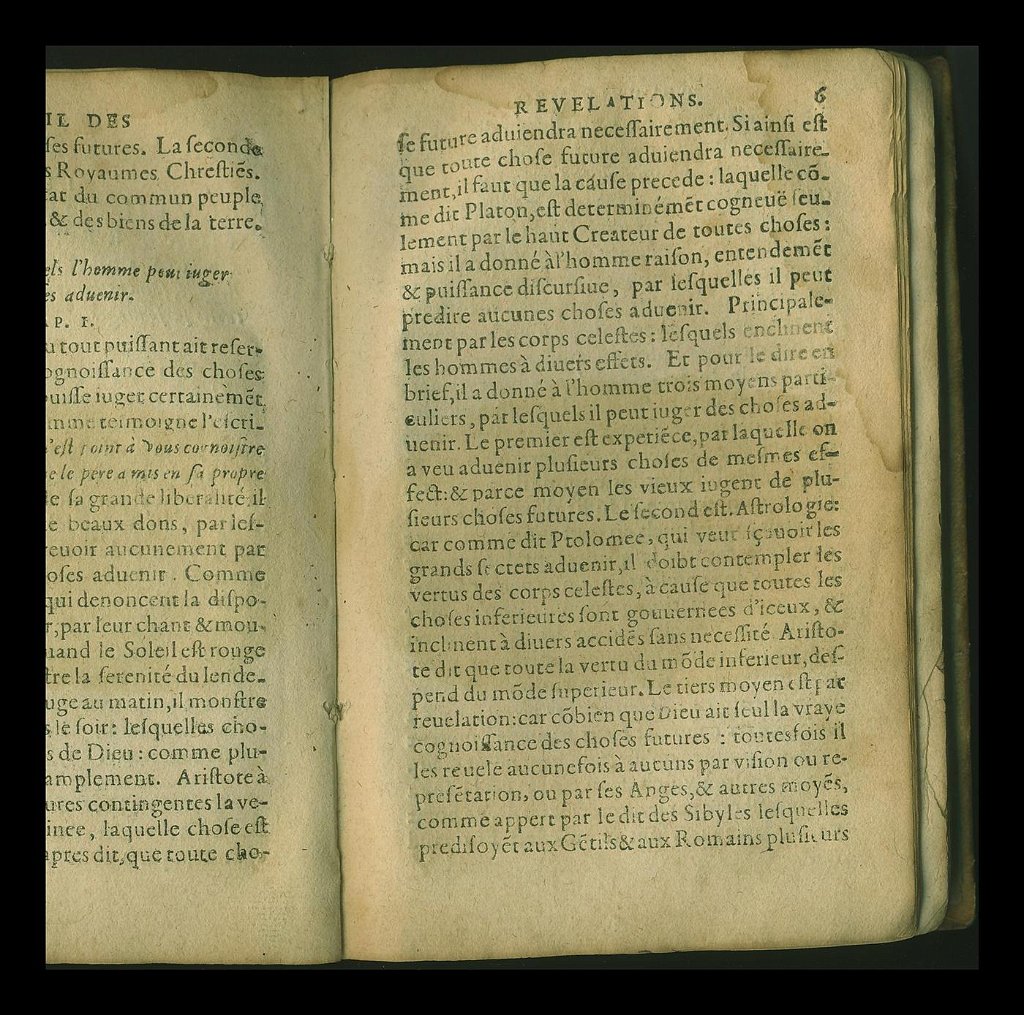 IL DES
ses futures. La seconde
s Royaumes Chrestiẽs.
at du commun peuple,
& des biens de la terre.
els l'homme peut iuger
es aduenir.
P. I.
u tout puissant ait reser-
ognoissance des choses
uisse iuger certainemẽt,
mme tesmoigne l'escri-
'est point à vous cognoistre
e le pere a mis en sa propre
e sa grande liberalité il
e beaux dons, par les-
euoir aucunement par
oses aduenir. Comme
qui denoncent la dispo-
r, par leur chant & mou-
uand le Soleil est rouge
tre la serenité du lende-
uge au matin, il monstre
s le soir: lesquelles cho-
s de Dieu: comme plu-
amplement. Aristote à
ures contingentes la ve-
inee, laquelle chose est
apres dit, que toute cho-
REVELATIONS. 6
se future aduiendra necessairement. Si ainsi est
que toute chose future aduiendra necessaire-
ment, il faut que la cause precede: laquelle cõ-
me dit Platon, est determinémẽt cogneuë seu-
lement par le haut Createur de toutes choses:
mais il a donné à l'homme raison, entendemẽt
& puissance discursiue, par lesquelles il peut
predire aucunes choses aduenir. Principale-
ment par les corps celestes: lesquels enclinent
les hommes à diuers effets. Et pour le dire en
brief, il a donné à l'homme trois moyens parti-
culiers, par lesquels il peut iuger des choses ad-
uenir. Le premier est experiẽce, par laquelle on
a veu aduenir plusieurs choses de mesmes ef-
fect: & par ce moyen les vieux iugent de plu-
sieurs choses futures. Le second est. Astrologie:
car comme dit Ptolomee, qui veut sçauoir les
grands secrets aduenir, il doibt contempler les
vertus des corps celestes, à cause que toutes les
choses inferieures sont gouuernees d'iceux, &
inclinent à diuers accidẽs sans necessité. Aristo-
te dit que toute la vertu du mõde inferieur, des-
pend du mõde superieur. Le tiers moyen est par
reuelation: car cõbien que Dieu ait seul la vraye
cognoissance des choses futures: toutesfois il
les reuele aucunefois à aucuns par vision ou re-
presẽtation, ou par ses Anges, & autres moyẽs,
comme appert par le dit des Sibyles lesquelles
predisoyẽt aux Gẽtils & aux Romains plusieurs